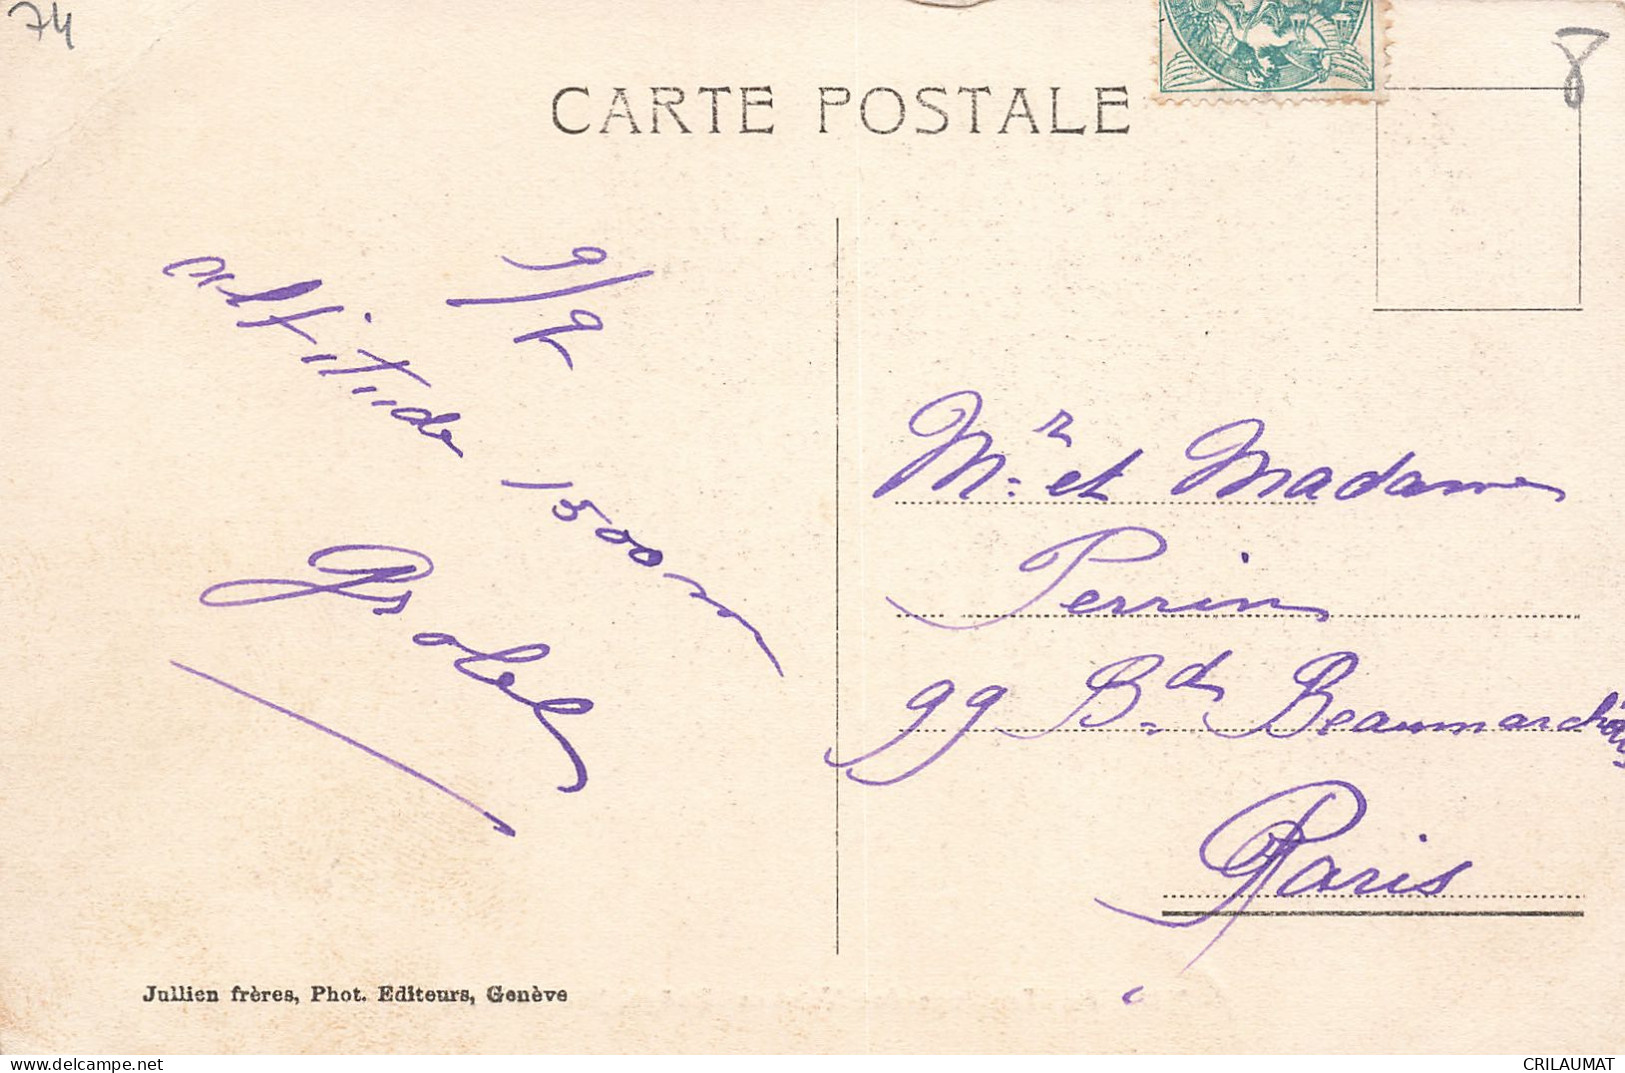 74
CARTE POSTALE
9/9
altitude 1500m
Mr. et Madame
Perrin
99 Bd. Beaumarchais
Paris
Jullien frères, Phot. Editeurs, Genève
delcampe.net
CRILAUMAT